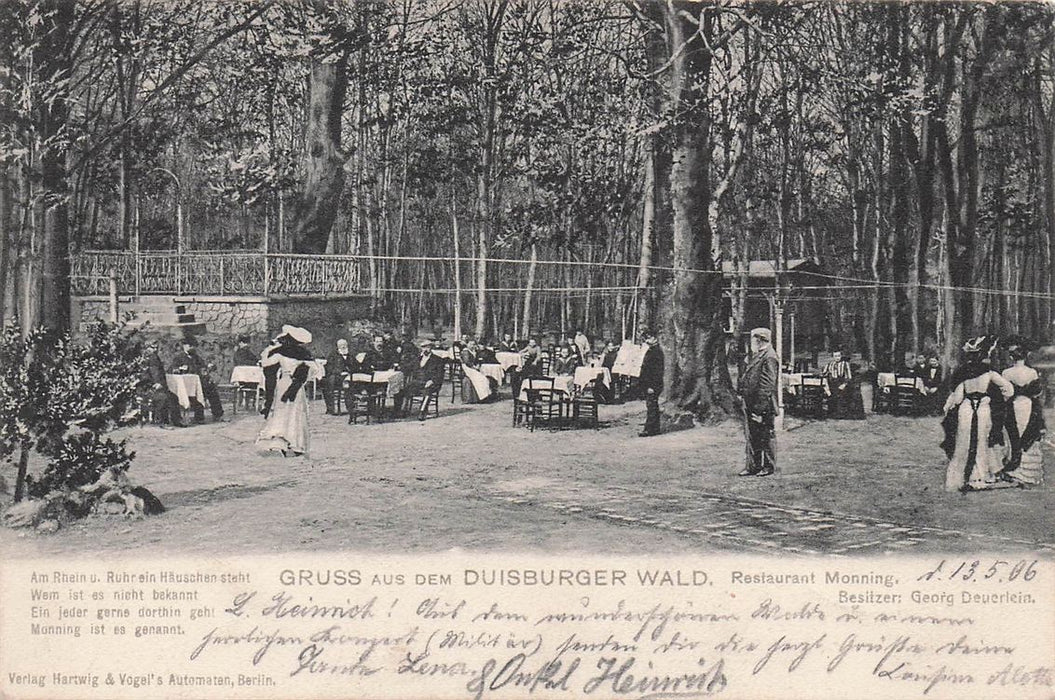 Am Rhein u. Ruhr ein Häuschen steht
Wem ist es nicht bekannt
Ein jeder gerne dorthin geht
Monning ist es genannt.
GRUSS AUS DEM DUISBURGER WALD. Restaurant Monning, d. 13.5.06
Besitzer: Georg Deuerlein.
L. Heinrich! Aus dem wunderschönen Walde u. einem
herrlichen Konzert (Militär) senden dir die herzl. Grüße deine
Tante Lena & Onkel Heinrich
Verlag Hartwig & Vogel's Automaten, Berlin.